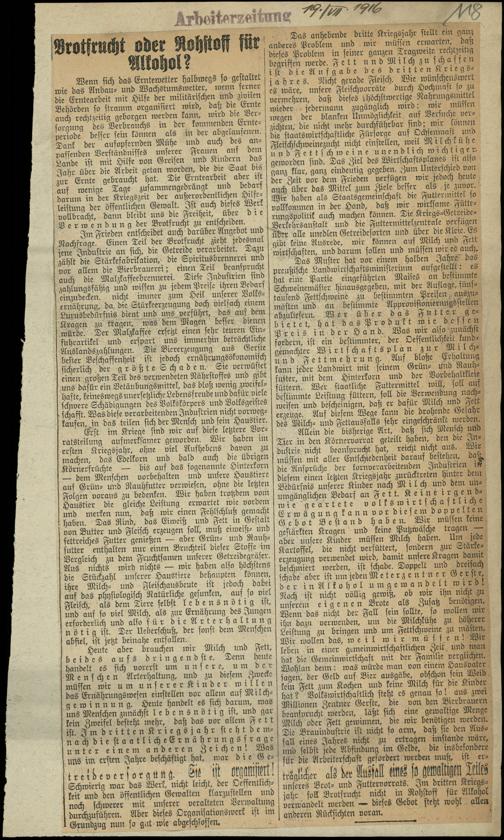 Arbeiterzeitung
19./VII. 1916
118
Brotfrucht oder Rohstoff für
Alkohol?
Wenn sich das Erntewetter halbwegs so gestaltet
wie das Anbau- und Wachstumswetter, wenn ferner
die Erntearbeit mit Hilfe der militärischen und zivilen
Behörden so stramm organisiert wird, daß die Ernte
auch rechtzeitig geborgen werden kann, wird die Ver-
sorgung des Verbrauchs in der kommenden Ernte-
periode besser sein können als in der abgelaufenen.
Dank der aufopfernden Mühe und auch des an-
passenden Verständnisses unserer Frauen auf dem
Lande ist mit Hilfe von Greisen und Kindern das
Jahr über die Arbeit getan worden, die die Saat bis
zur Ernte gebracht hat. Die Erntearbeit aber ist
auf wenige Tage zusammengedrängt und bedarf
darum in der Kriegszeit der außerordentlichen Hilfe-
leistung der öffentlichen Gewalt. Ist auch dieses Werk
vollbracht, dann bleibt uns die Freiheit, über die
Verwendung der Brotfrucht zu entscheiden.
Im Frieden entscheidet auch darüber Angebot und
Nachfrage. Einen Teil der Brotfrucht zieht jedesmal
jene Industrie an sich, die Getreide verarbeitet. Dazu
zählt die Stärkefabrikation, die Spiritusbrennerei und
vor allem die Bierbrauerei; einen Teil beansprucht
auch die Malzkaffeebrennerei. Diese Industrien sind
zahlungskräftig und wissen zu jedem Preise ihren Bedarf
einzudecken nicht immer zum Heil unserer Volks-
ernährung, da die Stärkeerzeugung doch vielfach einem
Luxusbedürfnis dient und uns verführt, das auf dem
Kragen zu tragen, was dem Magen besser dienen
würde. Der Malzkaffee ersetzt einen sehr teuren Ein-
fuhrartikel und erspart uns immerhin beträchtliche
Auslandszahlungen. Die Biererzeugung aus Gerste
bester Beschaffenheit ist jedoch ernährungsökonomisch
sicherlich der größte Schaden. Sie verwüstet
einen großen Teil des verwendeten Nährstoffes und gibt
uns dafür ein Betäubungsmittel, das bloß wenig zweifel-
hafte, keineswegs unersetzliche Lebensdienste und dafür viele
schwere Schädigungen des Volkskörpers und Volksgeistes
schafft. Was diese verarbeitenden Industrien nicht vorweg-
kaufen, in das teilen sich der Mensch und sein Haustier.
Erst im Kriege sind wir auf diese letztere Vor-
ratsteilung aufmerksamer geworden. Wir haben im
ersten Kriegsjahr, ohne viel Aufhebens davon zu
machen, das Edelkorn und dazu auch die übrigen
Körnerfrüchte — bis auf das sogenannte Hinterkorn
— dem Menschen vorbehalten und unsere Haustiere
auf Grün- und Rauhfutter verwiesen, ohne die letzten
Folgen voraus zu bedenken. Wir haben trotzdem von
Haustier die gleiche Leistung erwartet wie vordem
und merken nun, daß wir einen Fehlschluß gemacht
haben. Das Rind, das Eiweiß und Fett in Gestalt
von Butter und Fleisch erzeugen soll, muß eiweiß- und
fettreiches Futter genießen — aber Grün- und Rauh-
futter enthalten nur einen Bruchteil dieser Stoffe im
Vergleich zu dem Fruchtsamen unserer Getreidegräser.
Aus nichts wird nichts — wir haben also höchstens
die Stückzahl unserer Haustiere behaupten können,
ihre Milch- und Fleischdienste ist jedoch dabei
auf das physiologisch Natürliche gesunken, auf so viel
Fleisch, als dem Tiere selbst lebensnötig ist,
und auf so viel Milch, als zur Ernährung des Jungen
erforderlich und also für die Arterhaltung
nötig ist. Der Ueberschuß, der sonst dem Menschen
abfiel, ist jetzt beinahe entfallen.
Heute aber brauchen wir Milch und Fett,
beides aufs dringendste. Denn heute
handelt es sich vorerst um unsere, um der
Menschen Arterhaltung, und zu diesem Zwecke
müssen wir um unserer Kinder willen
das Ernährungswesen einstellen vor allem auf Milch-
gewinnung. Heute handelt es sich darum, was
uns Menschen zunächst lebensnötig ist, und gar
kein Zweifel besteht mehr, daß das vor allem Fett
ist. Im dritten Kriegsjahr steht dem-
nach die staatliche Ernährungsfrage
unter einem anderen Zeichen! Was
uns im ersten Jahre beschäftigt hat, war die Ge-
treideversorgung. Sie ist organisiert!
Schwierig war das Werk, nicht leicht, der Oeffentlich-
keit und den öffentlichen Gewalten klarzustellen und
noch schwerer mit unserer veralteten Verwaltung
durchzuführen. Aber dieses Organisationswerk ist im
Grundzug nun so gut wie abgeschlossen.
Das anhebende dritte Kriegsjahr stellt ein ganz
anderes Problem und wir müssen erwarten, daß
dieses Problem in seiner ganzen Tragweite rechtzeitig
begriffen werde. Fett und Milch zu schaffen
ist die Aufgabe des dritten Kriegs-
jahres. Nicht gerade Fleisch. Wie wünschenswert
es wäre, unsere Fleischvorräte durch Hochmast so zu
vermehren, daß dieses höchstwertige Nahrungsmittel
wieder jedermann zugänglich wird, wir müssen
wegen der blanken Unmöglichkeit auf Versuche ver-
zichten, die nicht mehr durchführbar sind; wir können
die staatswirtschaftliche Fürsorge auf Ochsenmast und
Fleischschweinezucht nicht einstellen, weil Milchkühe
und Fettschweine unendlich wichtiger
geworden sind. Das Ziel des Wirtschaftsplanes ist also
ganz klar, ganz eindeutig gegeben. Zum Unterschied von
der Zeit vor dem Frieden verfügen wir jedoch heute
auch über das Mittel zum Ziele besser als je zuvor.
Wir haben als Staatsgemeinschaft die Futtermittel so
vollkommen in der Hand, daß wir wirksame Fütte-
rungspolitik auch machen können. Die Kriegs-Getreide-
Verkehrsanstalt und die Futtermittelzentrale verfügen
über alle unedlen Getreidesorten und über die Kleie. Es
gibt keine Ausrede, wir können auf Milch und Fett
wirtschaften, und darum sollen und müssen wir es auch.
Das Muster hat vor einem halben Jahre das
preußische Landwirtschaftsministerium aufgestellt: es
hat eine Partie eingeführten Maises an bestimmte
Schweinezüchter hinausgegeben, mit der Auflage, fünf-
tausend Fettschweine zu bestimmten Preisen auszu-
mästen und an bestimmte Approvisionierungsstellen
abzuliefern. Wer über das Futter ge-
bietet, hat das Produkt wie dessen
Preis in der Hand. Was wir also zunächst
fordern, ist ein bestimmter, der Oeffentlichkeit kund-
gemachter Wirtschaftsplan zur Milch-
und Fettmehrung. Auf bloße Erhaltung
kann jeder Landwirt mit seinem Grün- und Rauh-
futter, mit dem Hinterkorn und der Vordehalkleie
füttern. Wer staatliche Futtermittel will, soll auf
bestimmte Leistung füttern, soll die Verwendung nach-
weisen und bescheinigen, daß er dafür Milch und Fett
erzeuge. Auf diesem Wege kann die drohende Gefahr
des Milch- und Fettausfalls sehr eingeschränkt werden.
Allein die bisherige Art, daß sich Mensch und
Tier in den Körnervorrat geteilt haben, den die In-
dustrie nicht beansprucht hat, reicht nicht aus. Wir
müssen mit aller Entschiedenheit darauf bestehen, daß
die Ansprüche der kornverarbeitenden Industrien in
diesem neuen letzten Kriegsjahr endlich dem Mindest-
bedürfnis unserer Kinder nach Milch und dem un-
umgänglichen Bedarf an Fett. Keine irgend-
wie geartete volkswirtschaftliche
Erwägung kann vor diesem doppelten
Gebot Bestand haben. Wir müssen keine
gestärkten Kragen und keine Putzwäsche tragen —
aber unsere Kinder müssen Milch haben. Um jede
Kartoffel, die nicht verfüttert, sondern zur Stärke-
erzeugung verwendet wird, damit unsere Kragen damit
beschmiert werden, ist schade. Doppelt und dreifach
schade aber ist um jeden Meterzentner Gerste,
der in Alkohol umgewandelt wird!
Noch ist nicht völlig gewiß, ob wir ihn nicht zu
unserem eigenen Brote als Zusatz benötigen.
Wenn das nicht der Fall sein sollte, so wollen wir
ihn dazu verwenden, um die Milchkühe zu höherer
Leistung zu bringen und um Fettschweine zu mästen.
Wir wollen das, weil wir müssen! Wir
leben in einer gemeinwirtschaftlichen Zeit und man
hat die Gemeinwirtschaft mit der Familie verglichen.
Wohlan denn: was würde man von einem Hausvater
sagen, der Geld auf Bier ausgäbe, obschon sein Weib
kein Fett zum Kochen und keine Milch für die Kinder
hat? Volkswirtschaftlich steht es genau so! aus zwei
Millionen Zentner Gerste, die von den Bierbrauern
beansprucht werden, läßt sich eine gewaltige Menge
Milch oder Fett gewinnen, die wir benötigen werden.
Die Brauindustrie ist nicht so arm, daß sie den Aus-
fall eines Jahres nicht zu ertragen imstande wäre,
und selbst die Abfindung im Gelde, die insbesondere
für die Arbeiterschaft gefordert werden müßte, ist er-
träglicher als der Ausfall eines so gewaltigen Teiles
unseres Brot- und Futtervorrats. Im dritten Kriegs-
jahr soll Brotfrucht nicht in Rohstoff für Alkohol
verwandelt werden — dieses Gebot steht wohl allen
anderen Rücksichten voran.